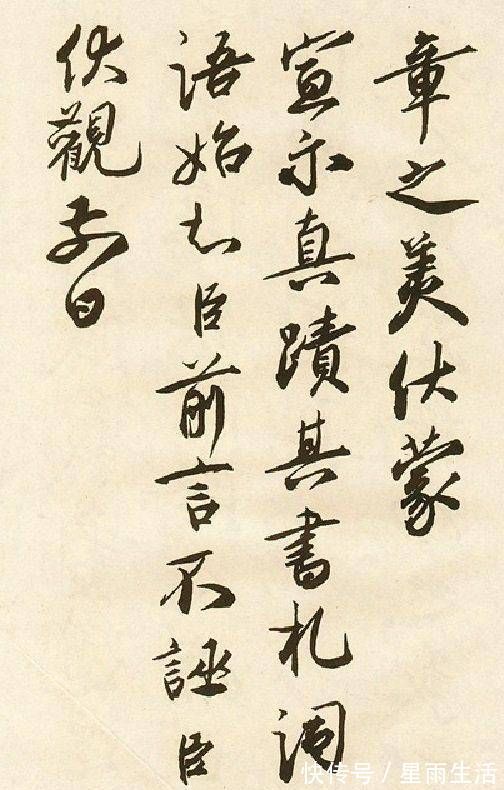 章之美伏蒙
宣示真蹟其書札詞
語始知臣前言不誣臣
伏觀日
快传号 / 星雨生活